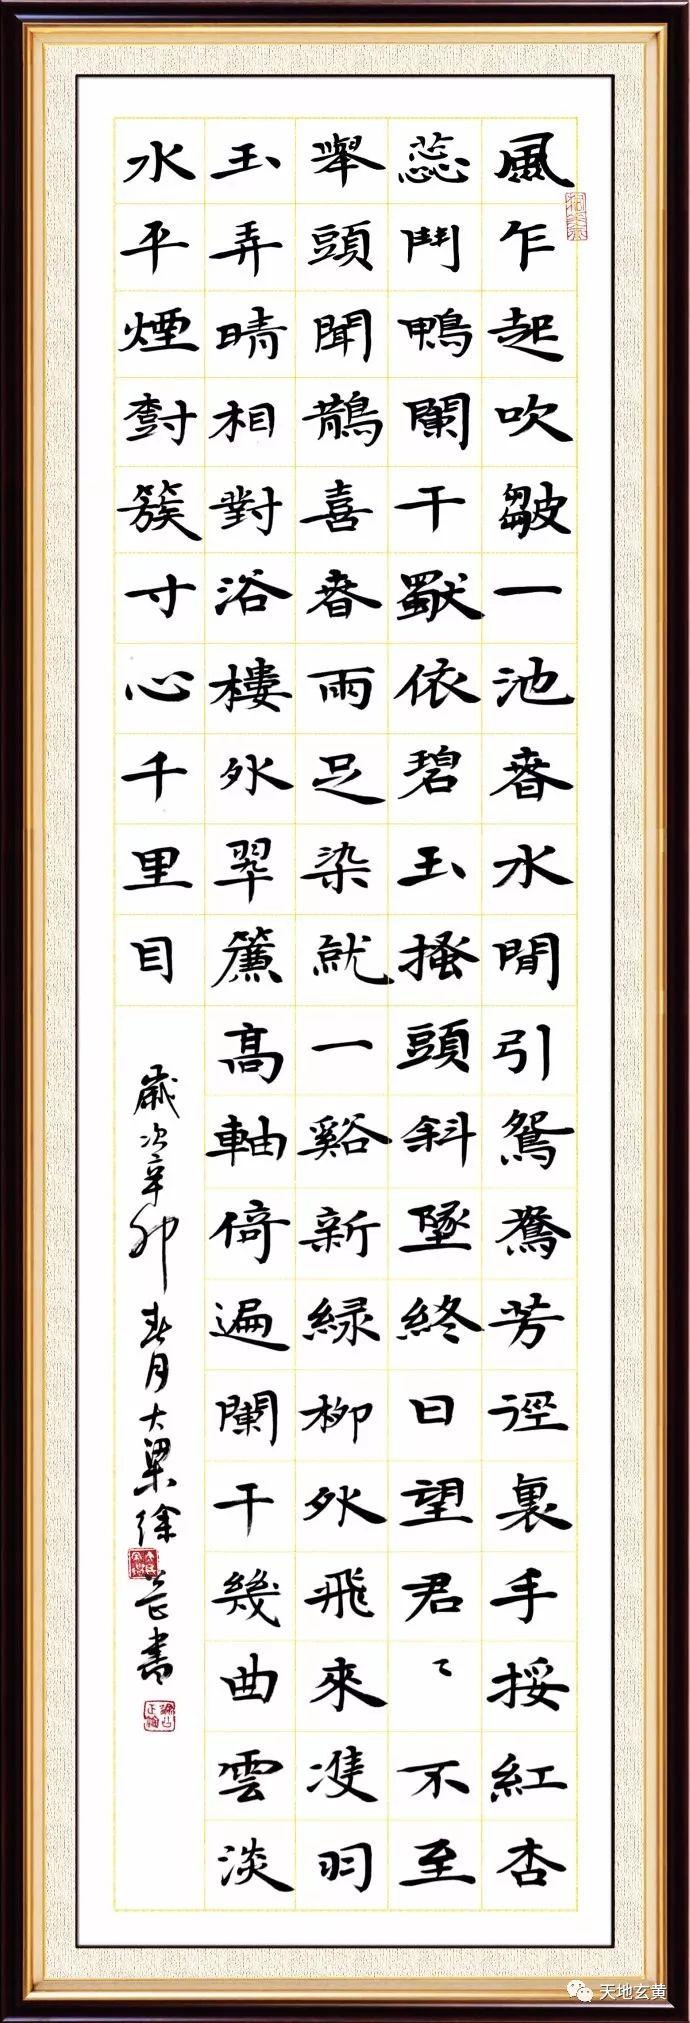 風乍起吹皺一池春水閒引鴛鴦芳徑裏手挼紅杏
蕊鬥鴨闌干獨依碧玉搔頭斜墜終日望君〻不至
舉頭聞鵲喜春雨足染就一谿新緑柳外飛來雙羽
玉弄晴相對浴樓外翠簾高軸倚遍闌干幾曲雲淡
水平煙樹簇寸心千里目
歲次辛卯春月大梁徐書
天地玄黄